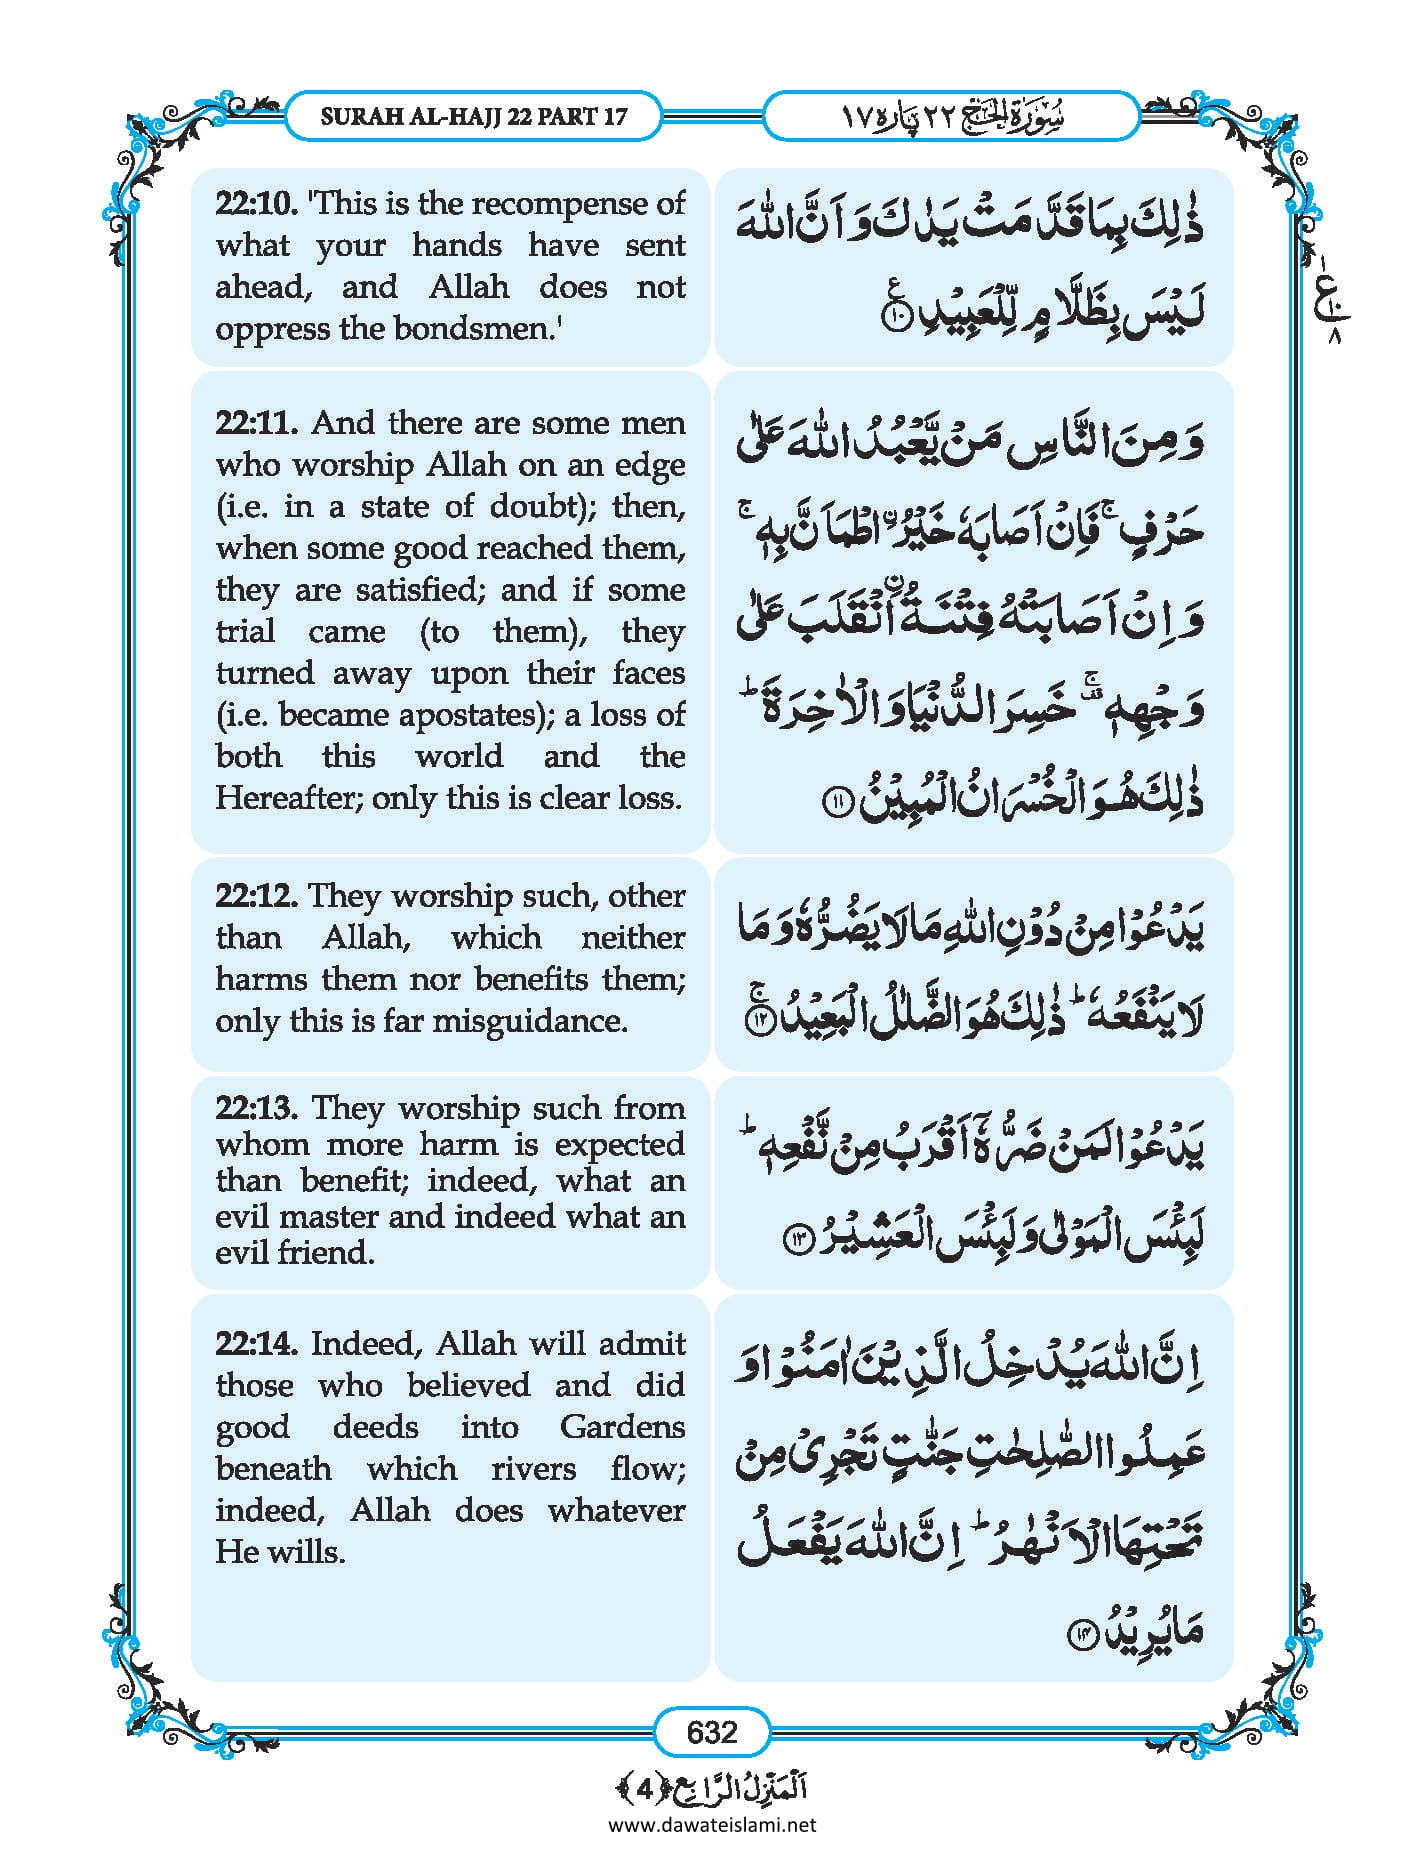 SURAH AL-HAJJ 22 PART 17
سُوْرَةُ الْحَجّ ٢٢ پارہ ١٧
22:10. 'This is the recompense of
what your hands have sent
ahead, and Allah does not
oppress the bondsmen.'
ذٰلِكَ بِمَا قَدَّمَتْ يَدٰكَ وَ اَنَّ اللّٰهَ
لَيْسَ بِظَلَّامٍ لِّلْعَبِيْدِ ۠ ﴿١٠﴾
ع
١
١٠
٨
22:11. And there are some men
who worship Allah on an edge
(i.e. in a state of doubt); then,
when some good reached them,
they are satisfied; and if some
trial came (to them), they
turned away upon their faces
(i.e. became apostates); a loss of
both this world and the
Hereafter; only this is clear loss.
وَ مِنَ النَّاسِ مَنْ يَّعْبُدُ اللّٰهَ عَلٰى
حَرْفٍ ۚ فَاِنْ اَصَابَهٗ خَيْرُ ۨ اطْمَاَنَّ بِهٖ ۚ
وَ اِنْ اَصَابَتْهُ فِتْنَةُ ۨ انْقَلَبَ عَلٰى
وَجْهِهٖ ۫ۚ خَسِرَ الدُّنْيَا وَ الْاٰخِرَةَ ؕ
ذٰلِكَ هُوَ الْخُسْرَانُ الْمُبِيْنُ ﴿١١﴾
22:12. They worship such, other
than Allah, which neither
harms them nor benefits them;
only this is far misguidance.
يَدْعُوْا مِنْ دُوْنِ اللّٰهِ مَا لَا يَضُرُّهٗ وَ مَا
لَا يَنْفَعُهٗ ؕ ذٰلِكَ هُوَ الضَّلٰلُ الْبَعِيْدُ ۚ ﴿١٢﴾
22:13. They worship such from
whom more harm is expected
than benefit; indeed, what an
evil master and indeed what an
evil friend.
يَدْعُوْا لَمَنْ ضَرُّهٗۤ اَقْرَبُ مِنْ نَّفْعِهٖ ؕ
لَبِئْسَ الْمَوْلٰى وَ لَبِئْسَ الْعَشِيْرُ ﴿١٣﴾
22:14. Indeed, Allah will admit
those who believed and did
good deeds into Gardens
beneath which rivers flow;
indeed, Allah does whatever
He wills.
اِنَّ اللّٰهَ يُدْخِلُ الَّذِيْنَ اٰمَنُوْا وَ
عَمِلُوا الصّٰلِحٰتِ جَنّٰتٍ تَجْرِىْ مِنْ
تَحْتِهَا الْاَنْهٰرُ ؕ اِنَّ اللّٰهَ يَفْعَلُ
مَا يُرِيْدُ ﴿١٤﴾
632
اَلْمَنْزِلُ الرَّابِع ﴿4﴾
www.dawateislami.net